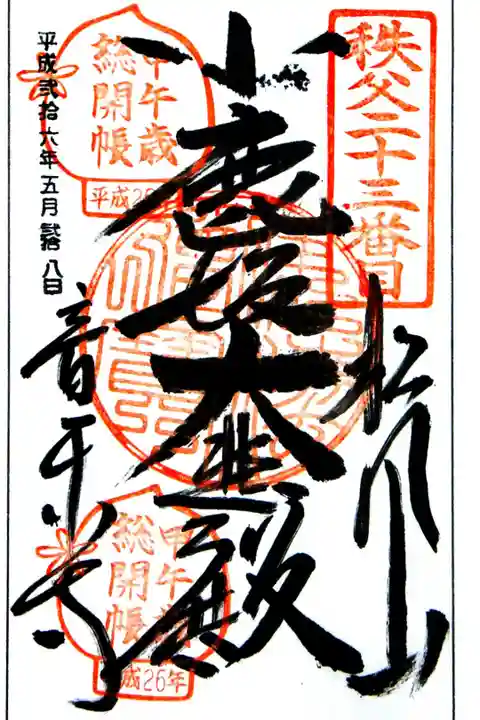 秩父二十三番
松風山
小鹿坂
大悲殿
甲午歳
総開帳
平成26
甲午
総開帳
成26年
平成弐拾六年五月弐拾八日
音楽寺